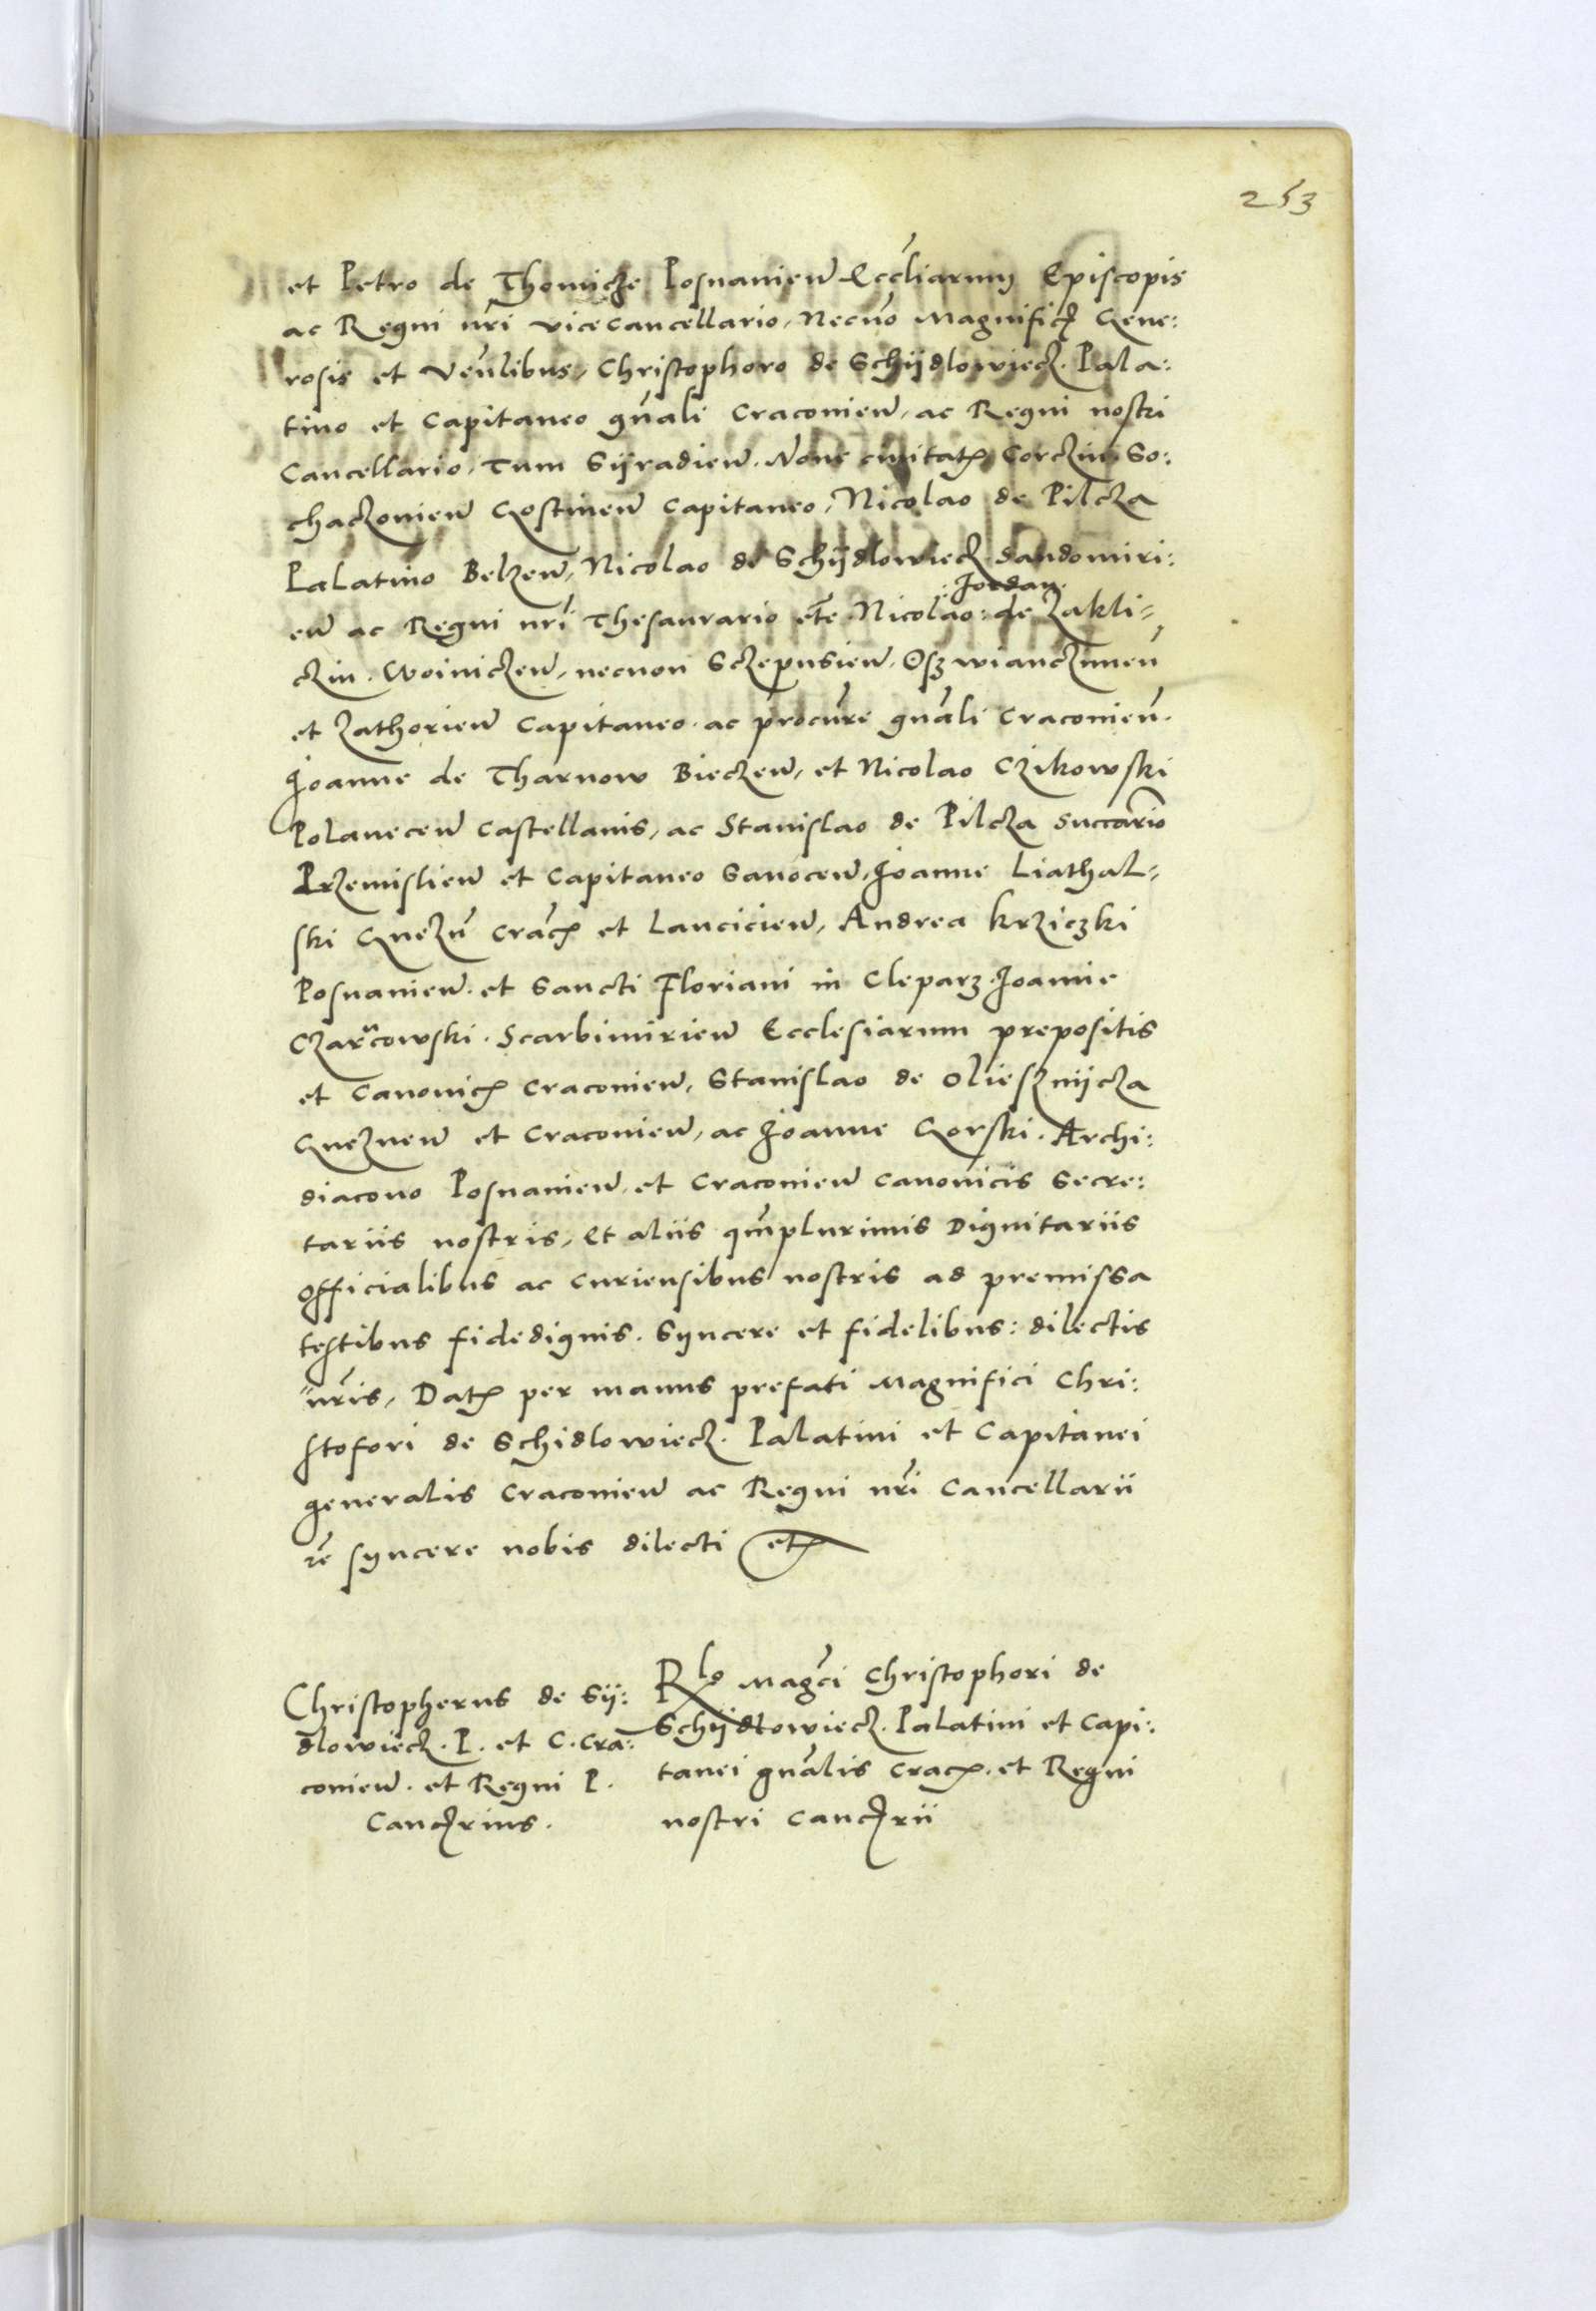 253
et Petro de Thomicze Posnanien Eccliarum Episcopis
ac Regni nri vicecancellario, Necno Magnificis Gene:
rosis et Venlibus, Christophoro de Schijdlowiecz. Pala:
tino et Capitaneo gnali Craconien, ac Regni nostri
Cancellario, Tum Sijradien. Noue ciuitatis Corczin, So:
chaczonien Gostinen Capitaneo, Nicolao de Pilcza
Palatino Belzen, Nicolao de Schijdlowiecz Sandomiri:
:Jordan:
en ac Regni nri Thesaurario etc Nicolao: de Zakli-
czin. Woiniczen, necnon Sczepusien. Oszwianczimen
et Zathorien Capitaneo. ac procure gnali Craconien.
Joanne de Tharnow Bieczen, et Nicolao Czikowski
Polanecen Castellanis, ac Stanislao de Pilcza succario
Przemislien et Capitaneo Sanocen, Joanne Liathal-
ski Gnezn Crac et Lancicien, Andrea Krziczki
Posnanien. et Sancti Floriani in Cleparz. Joanne
Czarcowski. Scarbimirien Ecclesiarum prepositis
et Canonicis Craconien, Stanislao de Oliesznijcza
Gneznen et Craconien, ac Joanne Gorski. Archi:
diacono Posnanien, et Craconien canonicis Secre:
tariis nostris, Et aliis qmplurimis Dignitariis
officialibus ac Curiensibus nostris ad premissa
testibus fidedignis. Syncere et fidelibus: dilectis
nris, Datis per manus prefati Magnifici Chri:
stofori de Schidlowiecz. Palatini et Capitanei
generalis Craconien ac Regni nri Cancellarii
re syncere nobis dilecti etc
Christopherus de Sij:
dlowiecz. P. et C. Cra:
conien. et Regni P.
Cancrius.
Rlo Magci Christophori de
Schijdlowiecz. Palatini et Capi:
tanei gnalis Crac. et Regni
nostri Cancrii